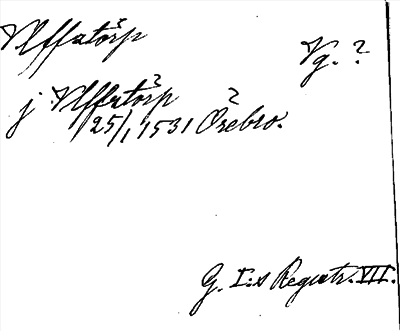 Ulffatorp
Vg. ?
j Ulffatorp
25/1 1531 Örebro.
G. I:s Registr. VII.